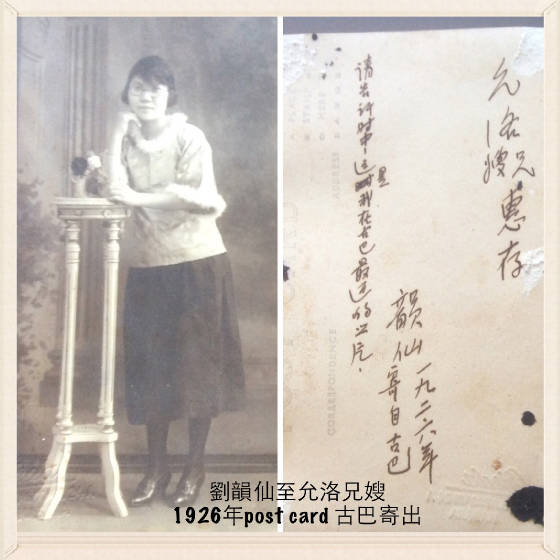 允洛兄嫂惠存
韻仙一九二六年
寄自古巴
请告诉时中，这是我在古巴最近的照片．
CORRESPONDENCE
劉韻仙至允洛兄嫂
1926年post card 古巴寄出